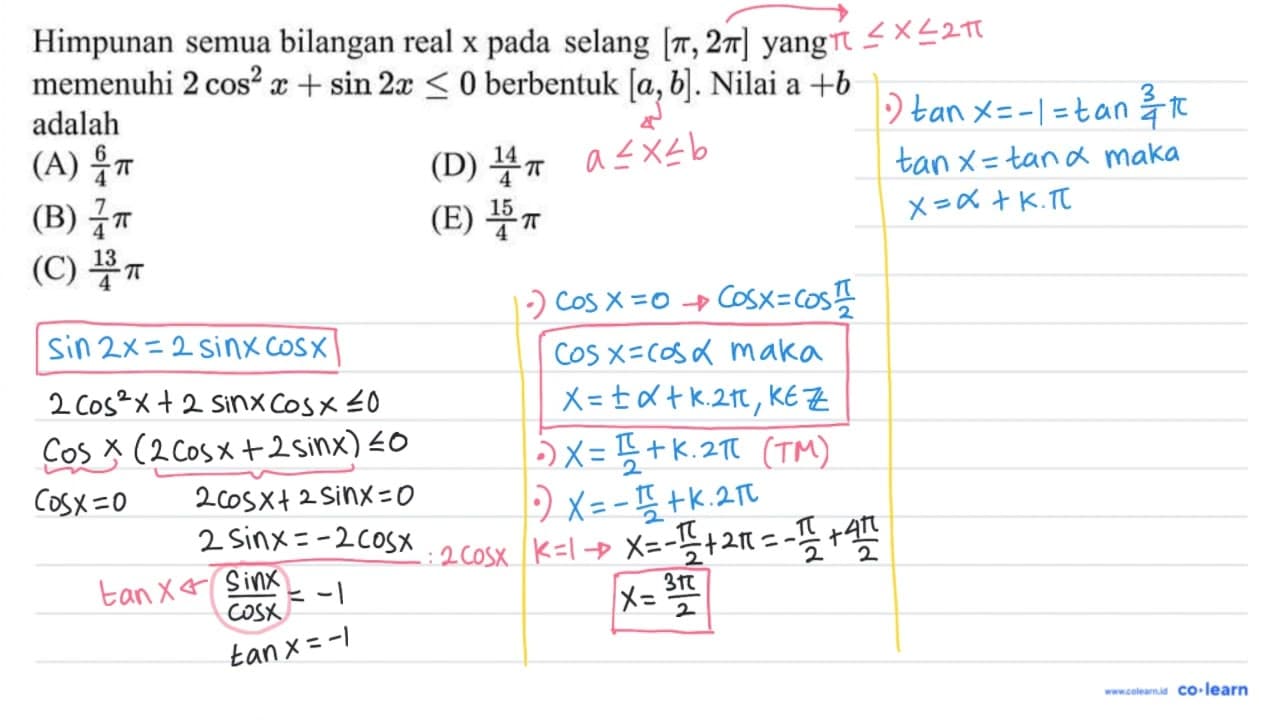 Himpunan semua bilangan real x pada selang [π, 2π] yang π ≤ x ≤ 2π
memenuhi 2 cos² x + sin 2x ≤ 0 berbentuk [a, b]. Nilai a +b
adalah
a ≤ x ≤ b
(A) 6/4 π
(B) 7/4 π
(C) 13/4 π
(D) 14/4 π
(E) 15/4 π
sin 2x = 2 sinx cosx
2 cos²x + 2 sinx cosx ≤ 0
Cos x (2 cosx + 2 sinx) ≤ 0
Cosx = 0 2cosx + 2 sinx = 0
2 sinx = -2 cosx : 2 cosx
tan x ← sinx/cosx = -1
tan x = -1
•) Cos x = 0 → Cosx = cos π/2
Cos x = cos α maka
x = ± α + k.2π, k ∈ Z
•) x = π/2 + k.2π (TM)
•) x = -π/2 + k.2π
k=1 → x = -π/2 + 2π = -π/2 + 4π/2
x = 3π/2
•) tan x = -1 = tan 3/4 π
tan x = tan α maka
x = α + k.π
www.colearn.id co•learn